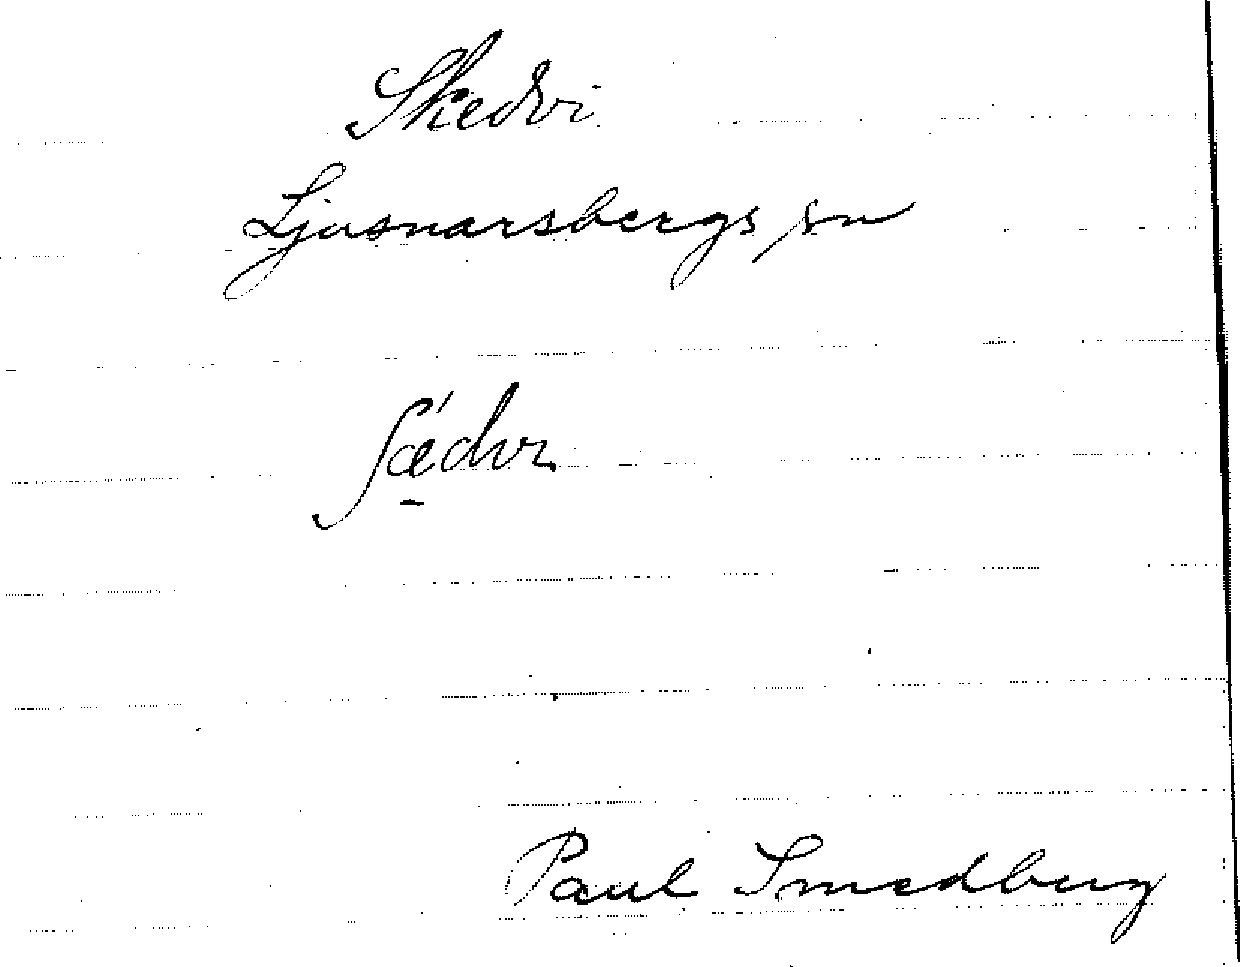 Skedvi
Ljusnarsbergs sn
Paul Smedberg